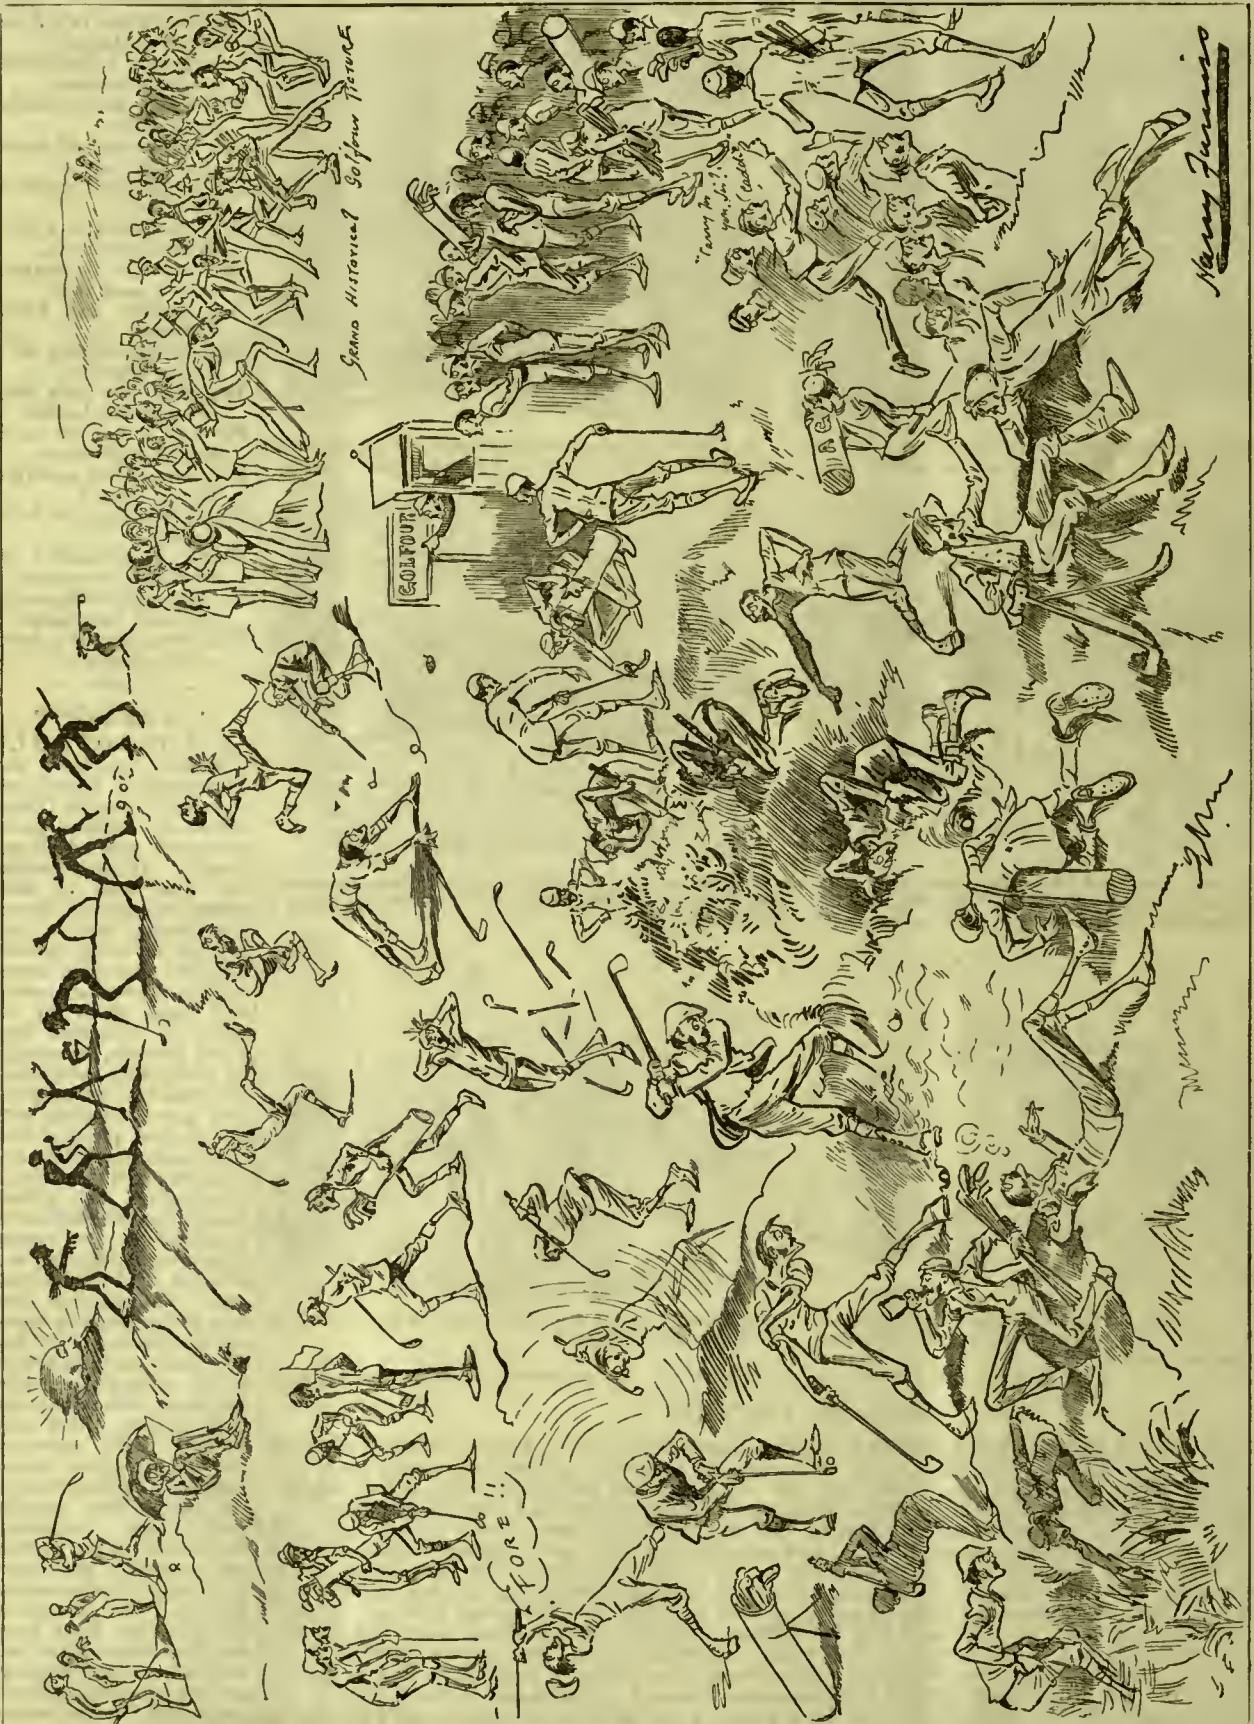 GRAND HISTORICAL GOLFOUR PICTURE
GOLFOUR
FORE!!
"Carry for
you, Sir!"
Harry Furniss